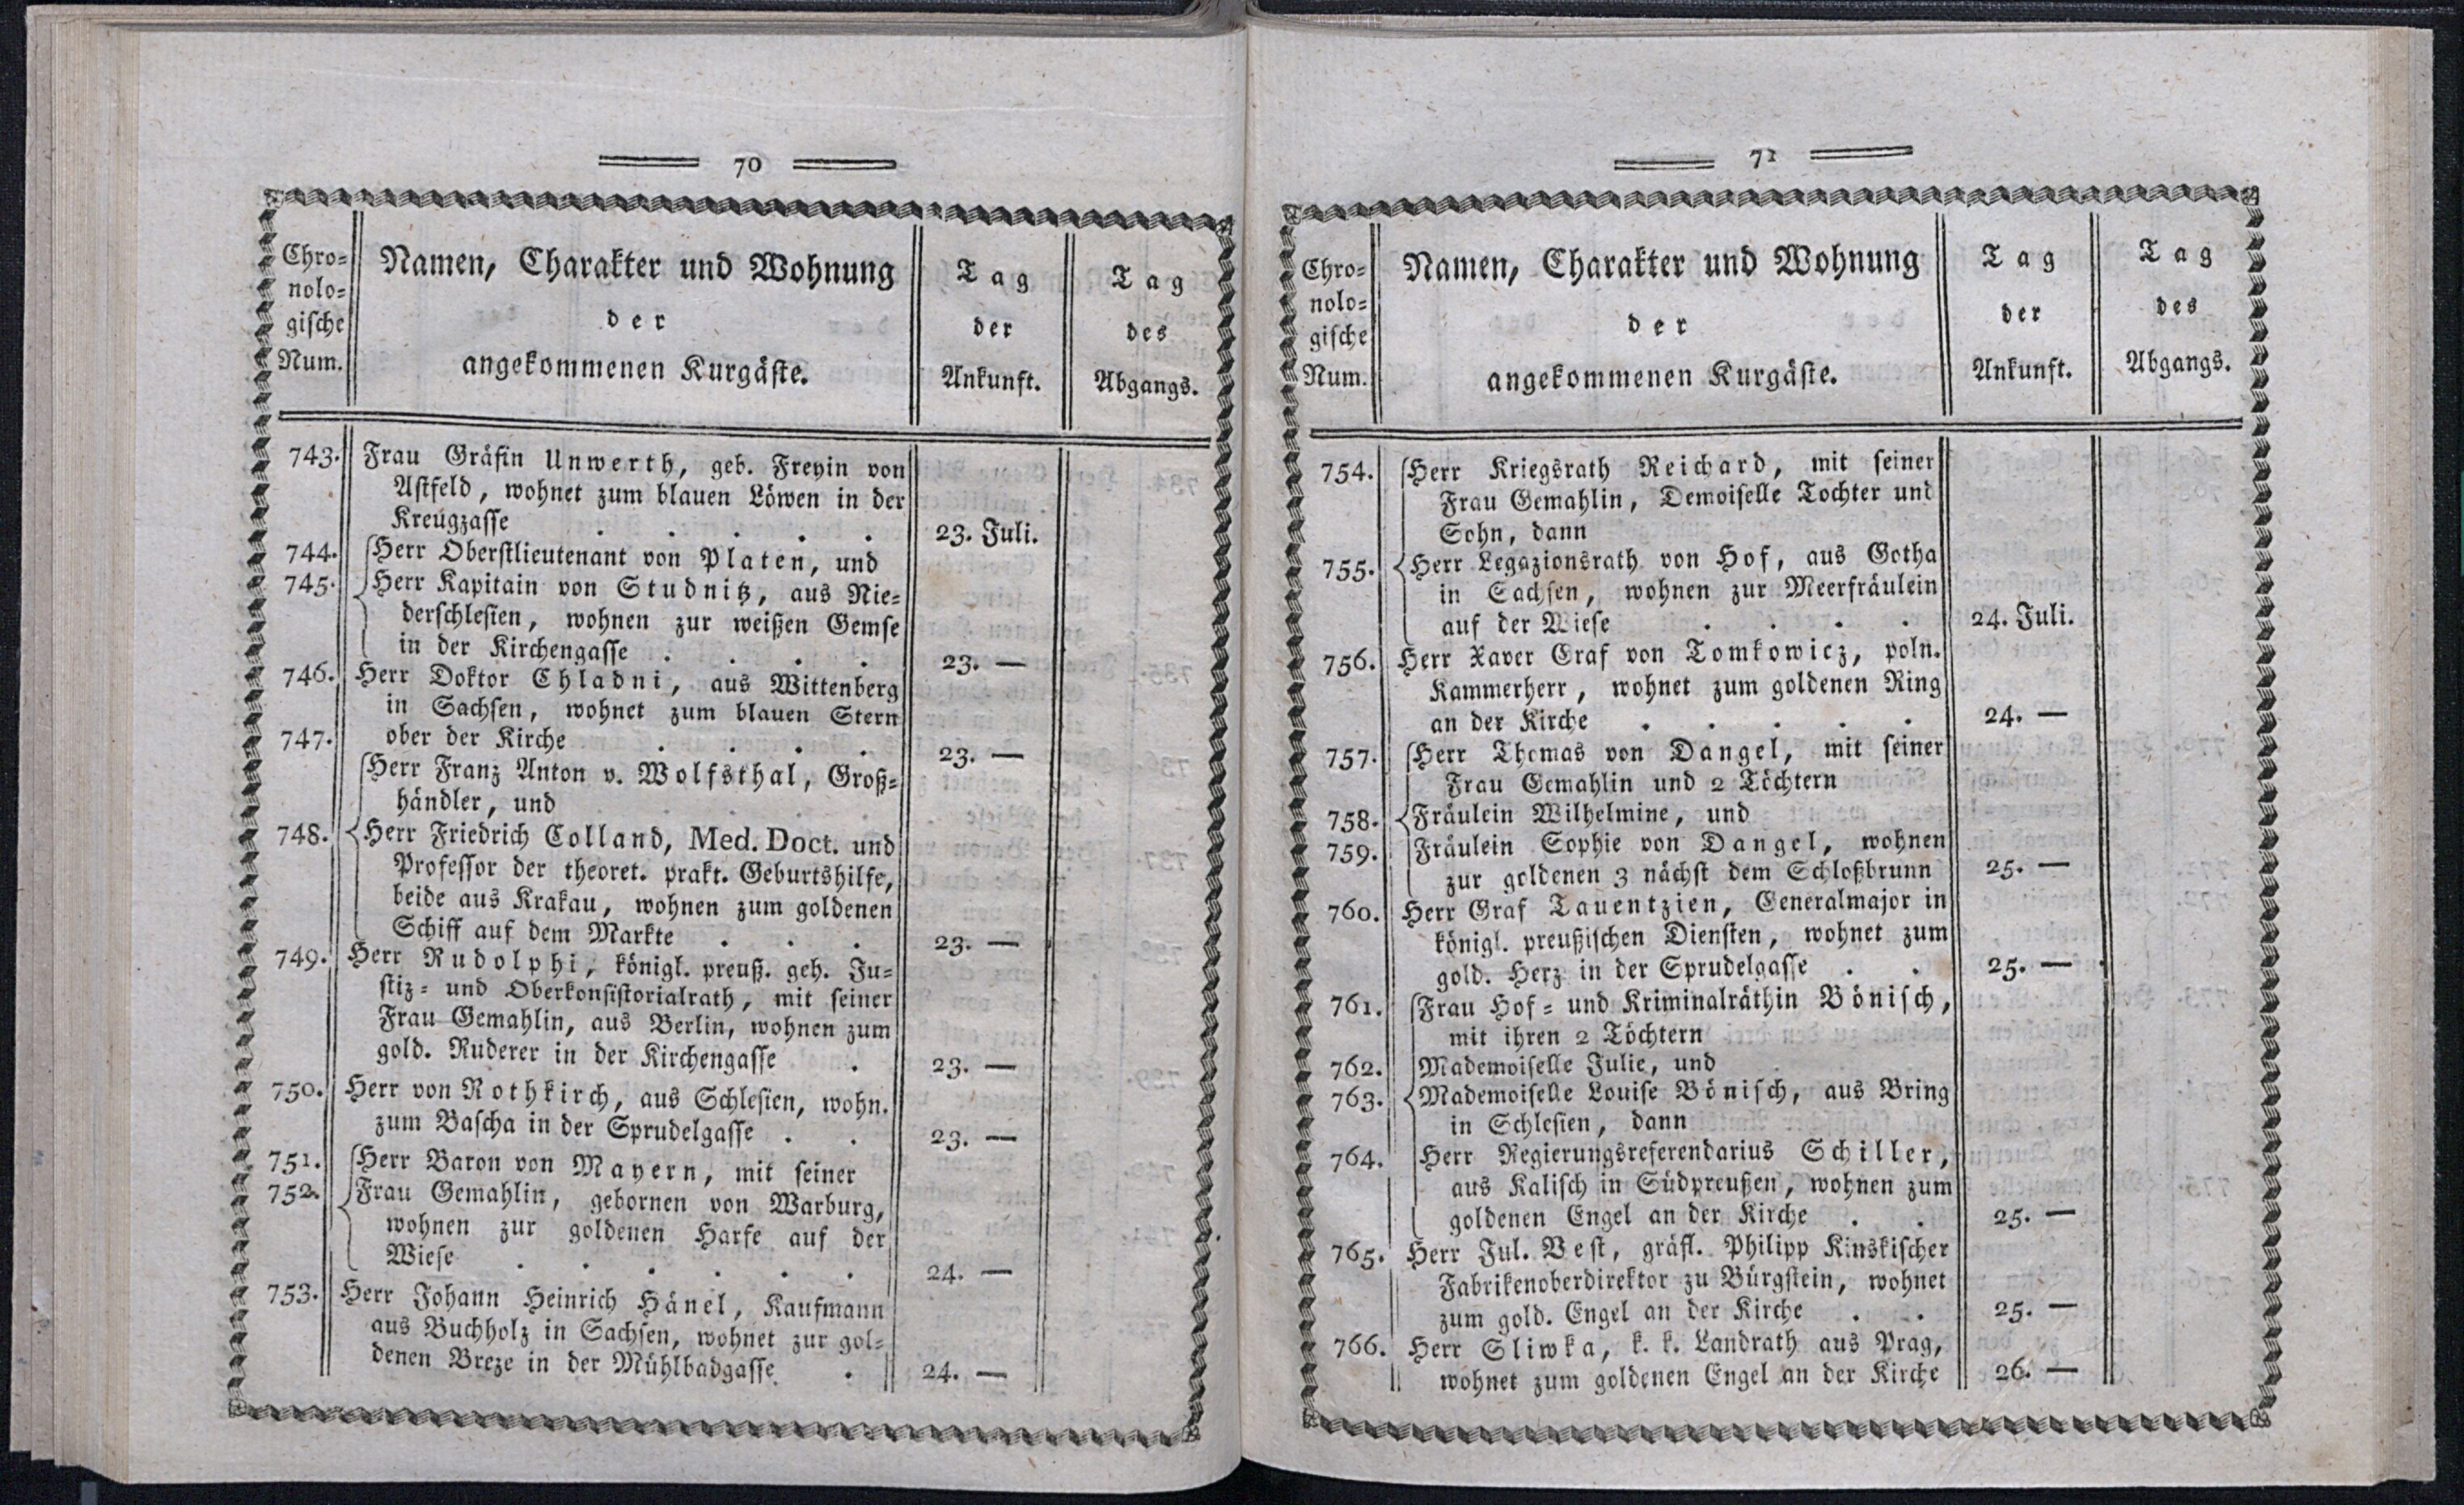 70
Chro-
nolo-
gische
Num.
Namen, Charakter und Wohnung
der
angekommenen Kurgäste.
Tag
der
Ankunft.
Tag
des
Abgangs.
743. Frau Gräfin Unwerth, geb. Freyin von
Astfeld, wohnet zum blauen Löwen in der
Kreugzasse . . . . . 23. Juli.
744. Herr Oberstlieutenant von Platen, und
745. Herr Kapitain von Studnitz, aus Nie-
derschlesien, wohnen zur weißen Gemse
in der Kirchengasse . . . . 23. —
746. Herr Doktor Chladni, aus Wittenberg
in Sachsen, wohnet zum blauen Stern
ober der Kirche . . . . 23. —
747. Herr Franz Anton v. Wolfsthal, Groß-
händler, und
748. Herr Friedrich Colland, Med. Doct. und
Professor der theoret. prakt. Geburtshilfe,
beide aus Krakau, wohnen zum goldenen
Schiff auf dem Markte . . . 23. —
749. Herr Rudolphi, königl. preuß. geh. Ju-
stiz- und Oberkonsistorialrath, mit seiner
Frau Gemahlin, aus Berlin, wohnen zum
gold. Ruderer in der Kirchengasse . 23. —
750. Herr von Rothkirch, aus Schlesien, wohn.
zum Bascha in der Sprudelgasse . . 23. —
751. Herr Baron von Mayern, mit seiner
752. Frau Gemahlin, gebornen von Warburg,
wohnen zur goldenen Harfe auf der
Wiese . . . . . . 24. —
753. Herr Johann Heinrich Hänel, Kaufmann
aus Buchholz in Sachsen, wohnet zur gol-
denen Breze in der Mühlbadgasse . 24. —
71
Chro-
nolo-
gische
Num.
Namen, Charakter und Wohnung
der
angekommenen Kurgäste.
Tag
der
Ankunft.
Tag
des
Abgangs.
754. Herr Kriegsrath Reichard, mit seiner
Frau Gemahlin, Demoiselle Tochter und
Sohn, dann
755. Herr Legazionsrath von Hof, aus Gotha
in Sachsen, wohnen zur Meerfräulein
auf der Wiese . . . . 24. Juli.
756. Herr Xaver Graf von Tomkowicz, poln.
Kammerherr, wohnet zum goldenen Ring
an der Kirche . . . . . 24. —
757. Herr Thomas von Dangel, mit seiner
Frau Gemahlin und 2 Töchtern
758. Fräulein Wilhelmine, und
759. Fräulein Sophie von Dangel, wohnen
zur goldenen 3 nächst dem Schloßbrunn 25. —
760. Herr Graf Tauentzien, Generalmajor in
königl. preußischen Diensten, wohnet zum
gold. Herz in der Sprudelgasse . . 25. —
761. Frau Hof- und Kriminalräthin Bönisch,
mit ihren 2 Töchtern
762. Mademoiselle Julie, und
763. Mademoiselle Louise Bönisch, aus Bring
in Schlesien, dann
764. Herr Regierungsreferendarius Schiller,
aus Kalisch in Südpreußen, wohnen zum
goldenen Engel an der Kirche . . 25. —
765. Herr Jul. Vest, gräfl. Philipp Kinskischer
Fabrikenoberdirektor zu Bürgstein, wohnet
zum gold. Engel an der Kirche . . 25. —
766. Herr Sliwka, k. k. Landrath aus Prag,
wohnet zum goldenen Engel an der Kirche 26. —